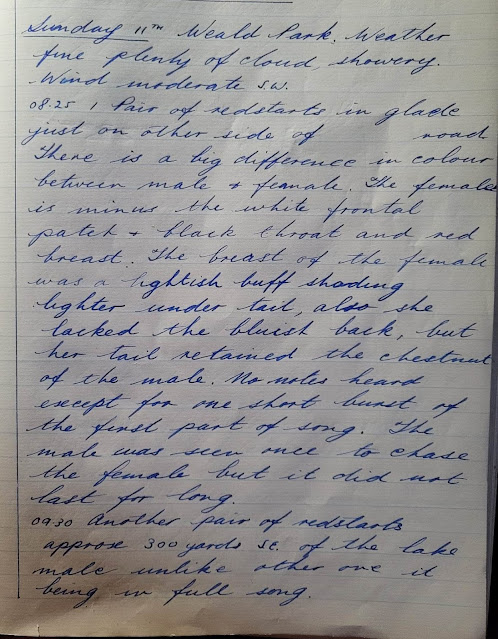 Sunday 11TH Weald Park. Weather
fine plenty of cloud, showery.
Wind moderate S.W.
08.25 1 Pair of redstarts in glade
just on other side of road
There is a big difference in colour
between male & female. The female
is minus the white frontal
patch & black throat and red
breast. The breast of the female
was a lightish buff shading
lighter under tail, also she
lacked the bluish back, but
her tail retained the chestnut
of the male. No notes heard
except for one short burst of
the first part of song. The
male was seen once to chase
the female but it did not
last for long.
09.30 Another pair of redstarts
approx 300 yards SE. of the lake
male unlike other one it
being in full song.